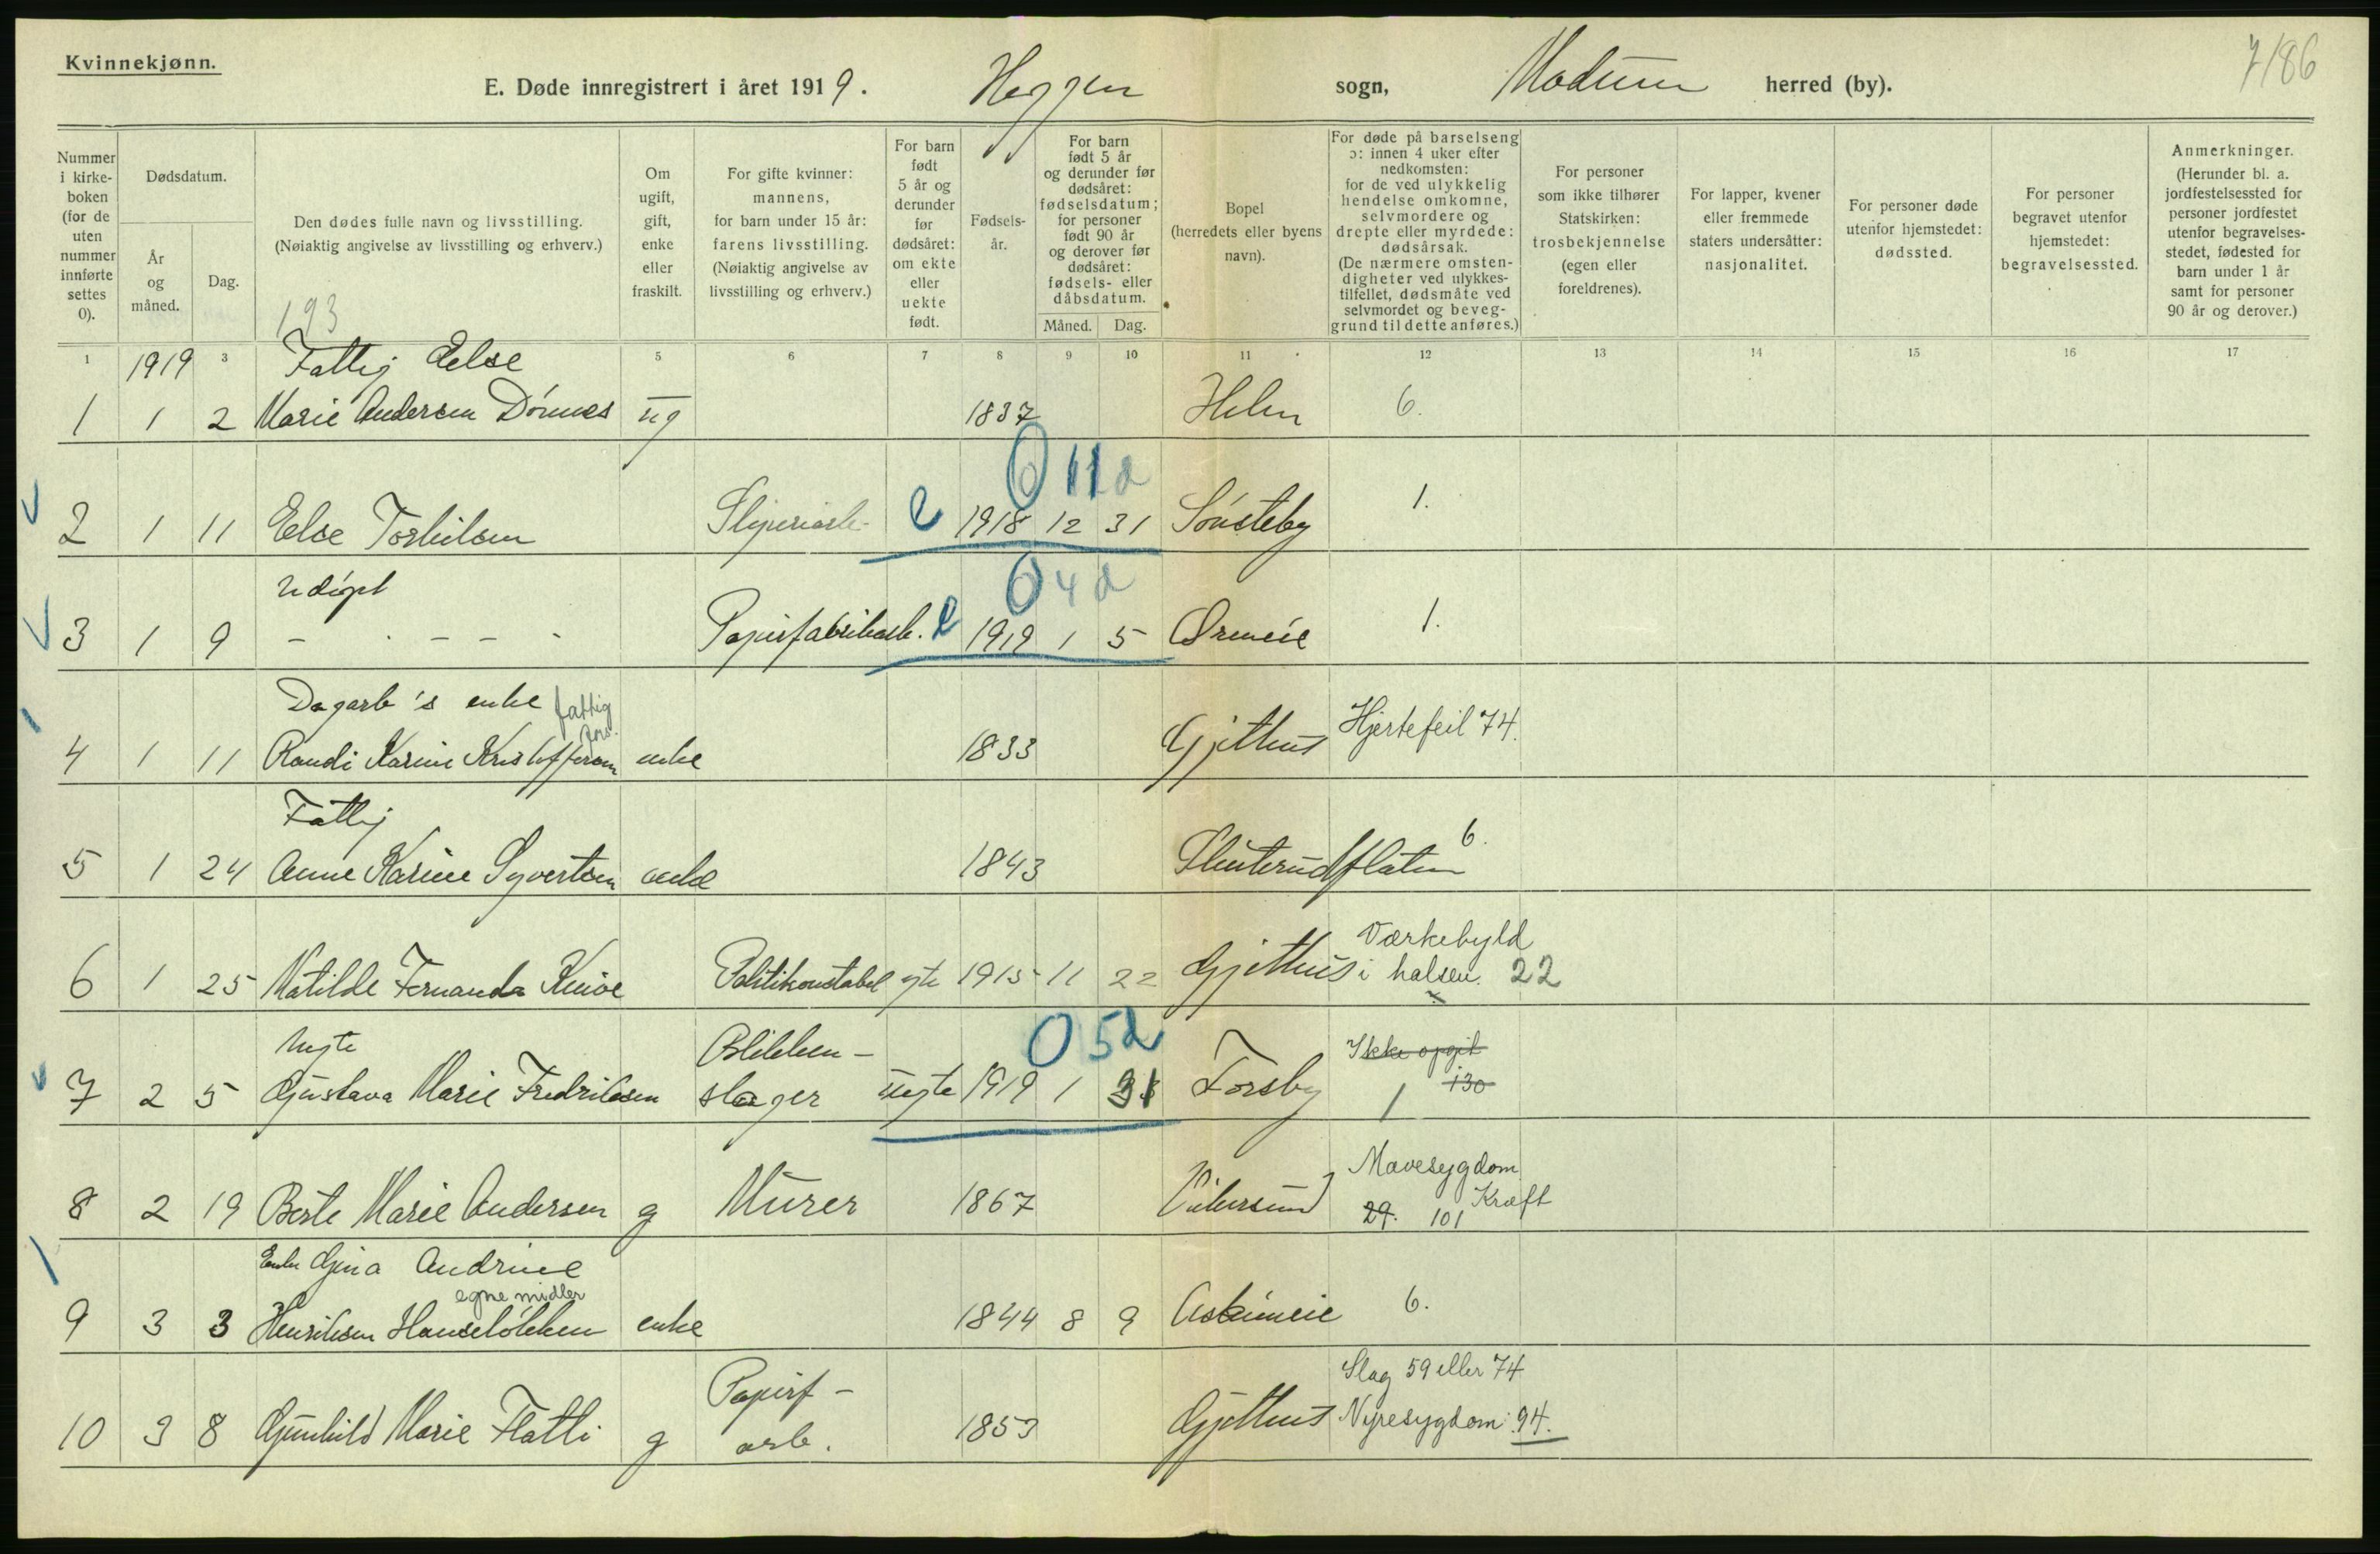 Kvinnekjønn.
7/86
E. Døde innregistrert i året 1919. Heggen sogn, Modum herred (by).
Nummer i kirke-boken (for de uten nummer innførte settes 0).
Dødsdatum.
År og måned.
Dag.
Den dødes fulle navn og livsstilling. (Nøiaktig angivelse av livsstilling og erhverv.)
193
Om ugift, gift, enke eller fraskilt.
For gifte kvinner: mannens, for barn under 15 år: farens livsstilling. (Nøiaktig angivelse av livsstilling og erhverv.)
For barn født 5 år og derunder før dødsåret: om ekte eller uekte født.
Fødsels-år.
For barn født 5 år og derunder før dødsåret: fødselsdatum; for personer født 90 år og derover før dødsåret: fødsels- eller dåbsdatum.
Måned. Dag.
Bopel (herredets eller byens navn).
For døde på barselseng ɔ: innen 4 uker efter nedkomsten: for de ved ulykkelig hendelse omkomne, selvmordere og drepte eller myrdede: dødsårsak. (De nærmere omsten-digheter ved ulykkes-tilfellet, dødsmåte ved selvmordet og beveg-grund til dette anføres.)
For personer som ikke tilhører Statskirken: trosbekjennelse (egen eller foreldrenes).
For lapper, kvener eller fremmede staters undersåtter: nasjonalitet.
For personer døde utenfor hjemstedet: dødssted.
For personer begravet utenfor hjemstedet: begravelsessted.
Anmerkninger. (Herunder bl. a. jordfestelsessted for personer jordfestet utenfor begravelses-stedet, fødested for barn under 1 år samt for personer 90 år og derover.)
1 3 5 6 7 8 9 10 11 12 13 14 15 16 17
1919 Fattig Else
1 1 2 Marie Andersen Dønnes ug 1837 Helen 6.
0 11 d
2 1 11 Else Torkilsen Sliperiarb- e 1918 12 31 Sønsteby 1.
Udøpt 0 4 d
3 1 9 - - - - Papirfabrikarb. e 1919 1 5 Ørneeie 1.
Dagarb's enke fattig fors. Hjertefeil 74.
4 1 11 Randi Karine Kristoffersen enke 1833 Gjethus
Fattig
5 1 24 Anne Karine Syvertsen enke 1843 Sluterudflaten 6.
Værkebyld
6 1 25 Matilde Fernanda Knive Politikonstabel egte 1915 11 22 Gjethus i halsen. 22
Uegte Blikken- 0 5 d Ikke opgit
7 2 5 Gustava Marie Fredriksen slager uegte 1919 1 31 Forsby 1 130
Mavesygdom
8 2 19 Berte Marie Andersen g Murer 1867 Vikersund 29. 101 Kræft
Enke Gina Andrine
egne midler
9 3 3 Henriksen Hanseløkken enke 1844 8 9 Askimeie 6.
Papirf- Slag 59 eller 74
10 3 8 Gunhild Marie Flatli g arb. 1853 Gjethus Nyresygdom: 94.